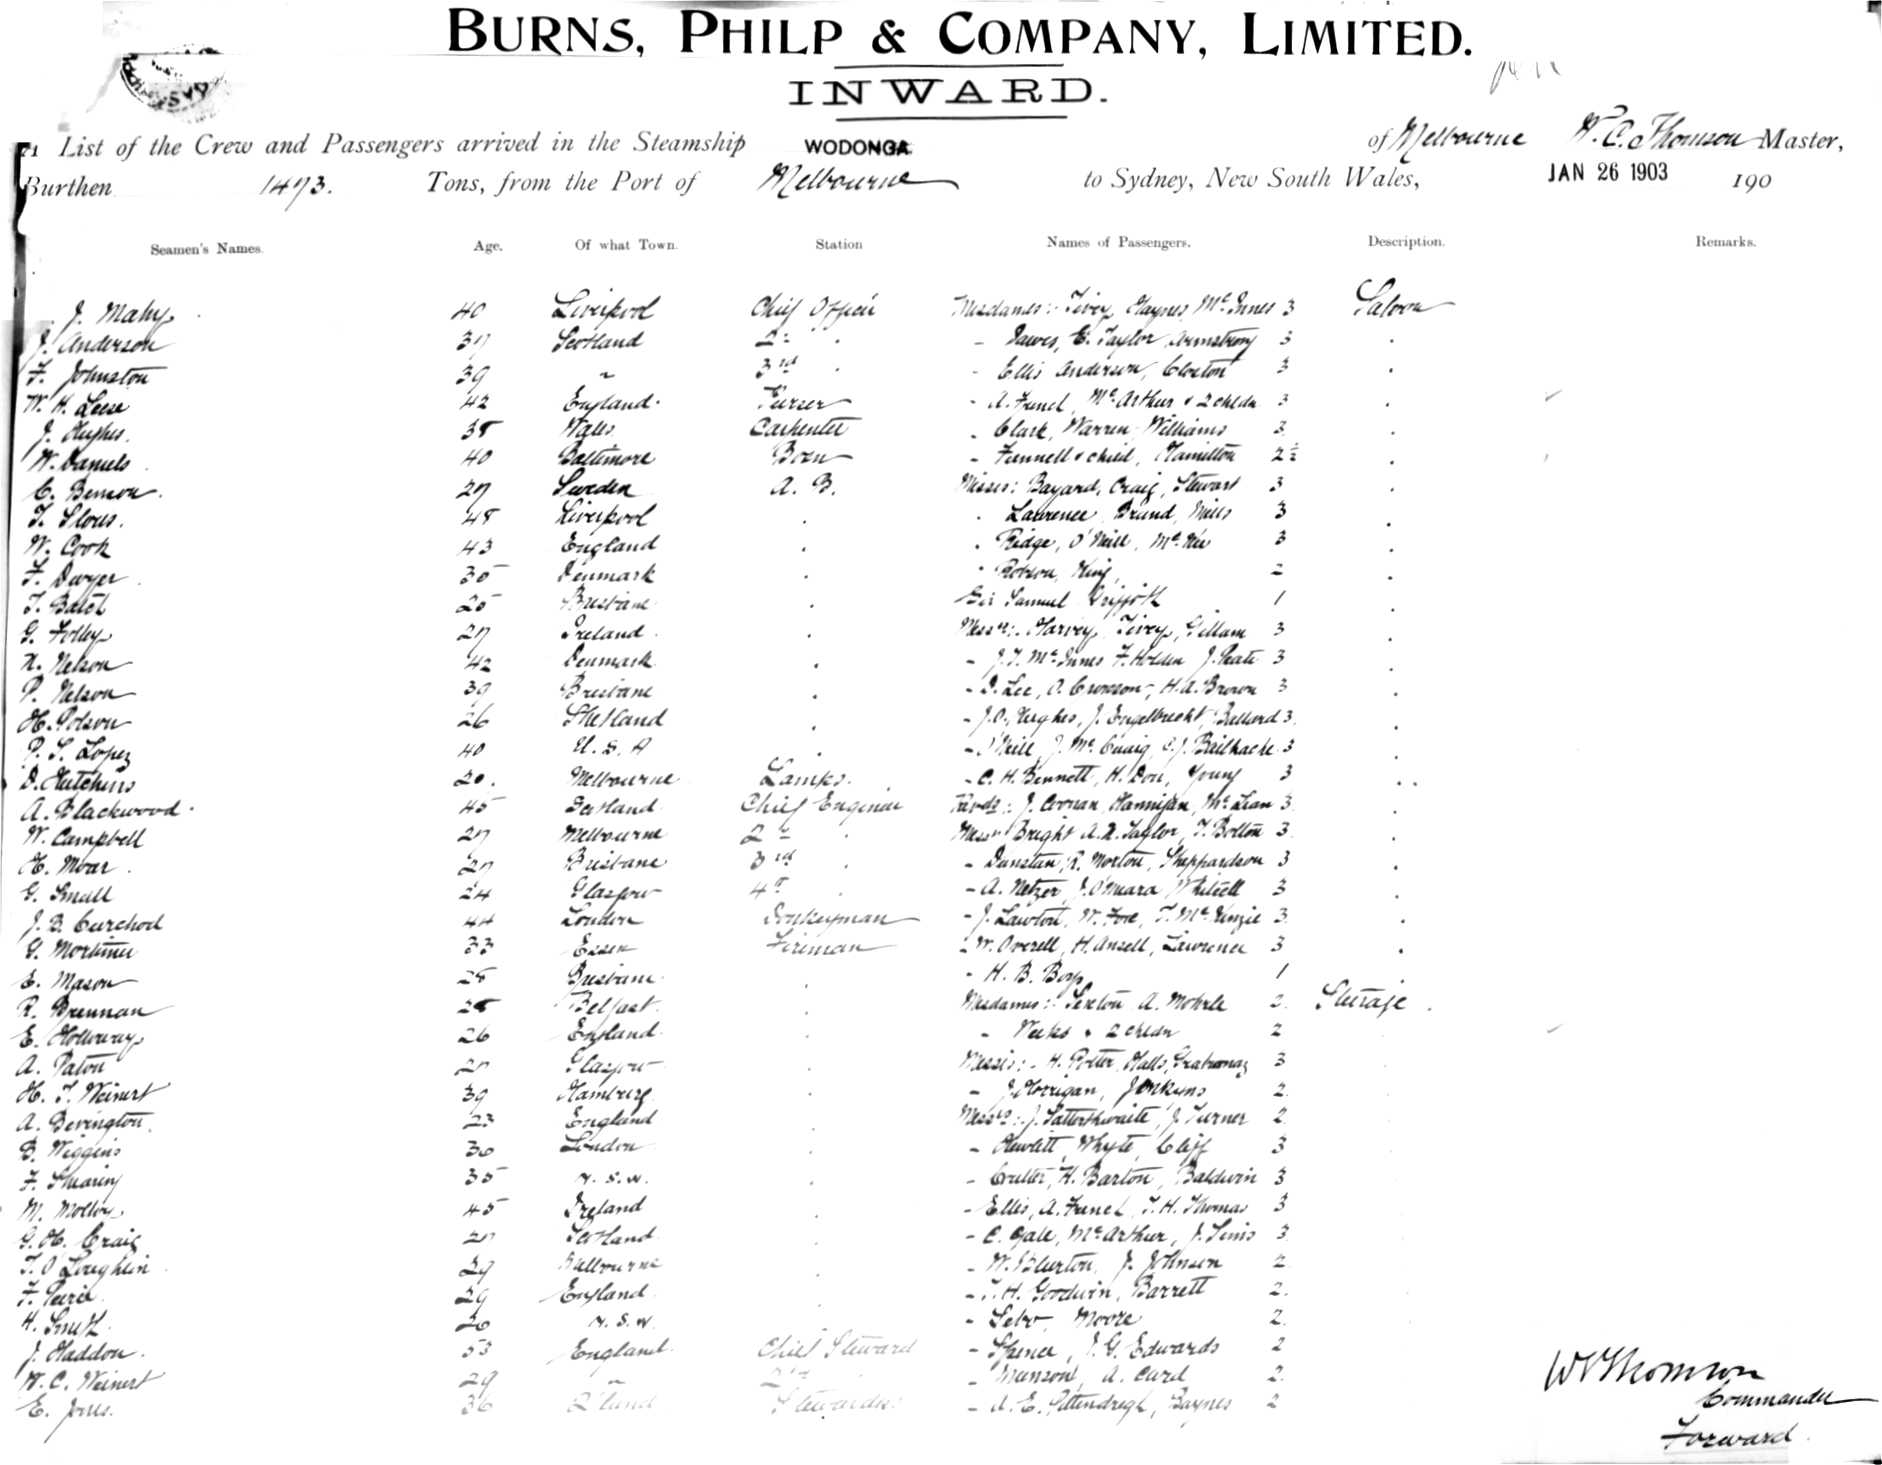 BURNS, PHILP & COMPANY, LIMITED.
INWARD.
A List of the Crew and Passengers arrived in the Steamship WODONGA of Melbourne W. C. Thomson Master,
Burthen 1473. Tons, from the Port of Melbourne to Sydney, New South Wales, JAN 26 1903 190
Seamen's Names. Age. Of what Town. Station Names of Passengers. Description. Remarks.
J. Mahy 40 Liverpool Chief Officer Mesdames: Tivey, Haynes, McInnes 3 Saloon
J. Anderson 37 Scotland 2nd - Dawes, E. Taylor, Armstrong 3
F. Johnston 39 " 3rd - Ellis Anderson, Cloxton 3
W. H. Leese 42 England Purser - A. French, McArthur & 2 chldn 3
J. Hughes 38 Wales Carpenter - Clark, Warren, Williams 3
W. Daniels 40 Baltimore Bosn - Funnell & child, Hamilton 2½
C. Benson 27 Sweden A. B. Misses: Bayard, Craig, Stewart 3
T. Slous 48 Liverpool Lawrence, Brund, Mills 3
W. Cook 43 England Ridge, O'Neill, McKee 3
F. Dwyer 35 Denmark Robson, King, 2
T. Batch 25 Brisbane Sir Samuel Griffith 1
G. Folley 27 Ireland Messrs: Harvey, Tivey, Gillam 3
N. Nelson 42 Denmark - J. T. McInnes F. Holden J. Peate 3
P. Nelson 39 Brisbane - D. Lee, O. Cronson, H. A. Brown 3
H. Polson 26 Shetland - J. O. Hughes, J. Engelbrecht, Ballard 3
P. S. Lopez 40 U. S. A - O'Neill, J. McCraig, A. J. Bailhache 3
D. Hutchins 20 Melbourne Lamps - C. H. Bennett, H. Don, Young 3
A. Blackwood 45 Scotland Chief Engineer J. Coonan, Hannigan, McLean 3
W. Campbell 27 Melbourne 2nd Messrs Bright A. N. Taylor, T. Bolton 3
H. Moar 27 Brisbane 3rd - Dunstan, R. Morton, Sheppardson 3
G. Small 24 Glasgow 4th - A. Netzer, J. O'Meara, Whitcell 3
J. B. Curchod 44 London Donkeyman - J. Lawton, W. Fore, T. McKenzie 3
G. Mortimer 33 Essex Fireman - W. Overell, H. Ansell, Lawrence 3
E. Mason 28 Brisbane - H. B. Boys 1
R. Brennan 28 Belfast Mesdames: Sexton A. Mohrle 2 Steerage
E. Holloway 26 England - Weeks & 2 chldn 2
A. Paton 27 Glasgow Misses: H. Potter, Halls, 3
H. T. Weinert 39 Hamburg - J. Horrigan, Jenkyns 2
A. Bevington 23 England Messrs: J. Satterthwaite, J. Turner 2
B. Wiggins 30 London - Hewlett, Whyte, Cliff 3
F. Shearing 35 N. S. W. - Coulter, H. Barton, Baldwin 3
M. Molloy 45 Ireland - Ellis, A. French, T. H. Thomas 3
G. H. Craig 27 Scotland - C. Gale, McArthur, J. Sims 3
T. O'Loughlin 29 Melbourne - W. Blurton, J. Johnson 2
F. Peirce 29 England - T. H. Goodwin, Barrett 2
H. Smith 20 N. S. W. - Lebo, Moore 2
J. Haddon 53 England Chief Steward - Spence, J. G. Edwards 2
W. C. Weinert 29 " 2nd - Munson, A. Card 2
E. Jones 36 Q'land Stewardess - A. E. Pittendrigh, Baynes 2
W C Thomson
Commander
Forward